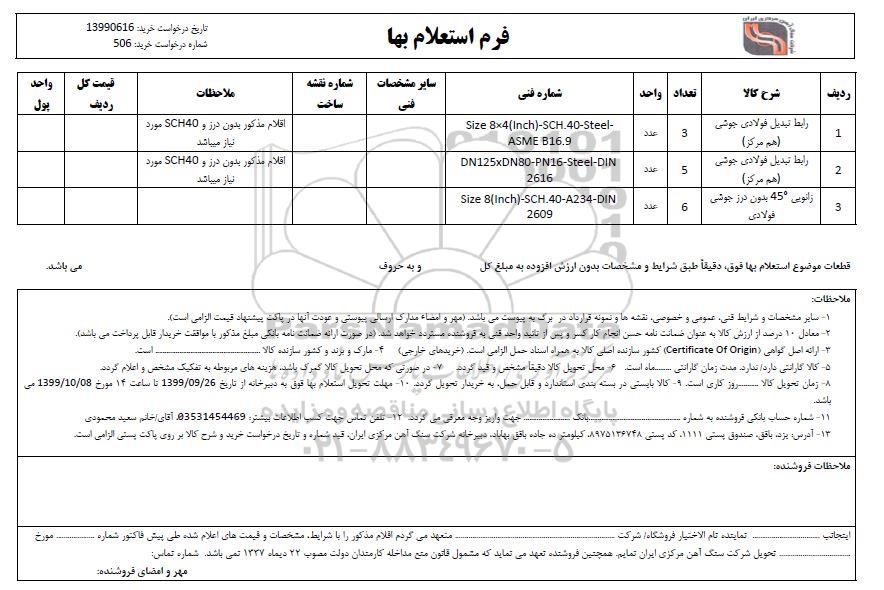 شرکت سنگ آهن مرکزی ایران
فرم استعلام بها
تاریخ درخواست خرید: 13990616
شماره درخواست خرید: 506
ردیف شرح کالا تعداد واحد شماره فنی سایر مشخصات فنی شماره نقشه ساخت ملاحظات قیمت کل ردیف واحد پول
1 رابط تبدیل فولادی جوشی (هم مرکز) 3 عدد Size 8×4(Inch)-SCH.40-Steel-ASME B16.9 اقلام مذکور بدون درز و SCH40 مورد نیاز میباشد
2 رابط تبدیل فولادی جوشی (هم مرکز) 5 عدد DN125xDN80-PN16-Steel-DIN 2616 اقلام مذکور بدون درز و SCH40 مورد نیاز میباشد
3 زانویی °45 بدون درز جوشی فولادی 6 عدد Size 8(Inch)-SCH.40-A234-DIN 2609
قطعات موضوع استعلام بها فوق، دقیقاً طبق شرایط و مشخصات بدون ارزش افزوده به مبلغ کل و به حروف می باشد.
ملاحظات:
۱- سایر مشخصات و شرایط فنی، عمومی و خصوصی، نقشه ها و نمونه قرارداد در برگ به پیوست می باشد. (مهر و امضاء مدارک ارسالی پیوستی و عودت آنها در پاکت پیشنهاد قیمت الزامی است).
۲- معادل ۱۰ درصد از ارزش کالا به عنوان ضمانت نامه حسن انجام کار کسر و پس از تائید واحد فنی به فروشنده مسترد خواهد شد. (در صورت ارائه ضمانت نامه بانکی مبلغ مذکور با موافقت خریدار قابل پرداخت می باشد).
۳- ارائه اصل گواهی (Certificate Of Origin) کشور سازنده اصلی کالا به همراه اسناد حمل الزامی است. (خریدهای خارجی) ۴- مارک و برند و کشور سازنده کالا .................... است.
۵- کالا گارانتی دارد/ ندارد. مدت زمان گارانتی ........ماه است. ۶- محل تحویل کالا دقیقاً مشخص و قید گردد. ۷- در صورتی که محل تحویل کالا گمرک باشد، هزینه های مربوطه به تفکیک مشخص و اعلام گردد.
۸- زمان تحویل کالا ..........روز کاری است. ۹- کالا بایستی در بسته بندی استاندارد و قابل حمل، به خریدار تحویل گردد. ۱۰- مهلت تحویل استعلام بها فوق به دبیرخانه از تاریخ 1399/09/26 تا ساعت ۱۴ مورخ 1399/10/08 می
باشد.
۱۱- شماره حساب بانکی فروشنده به شماره .................... بانک .................... جهت واریز وجه معرفی می گردد. ۱۲- تلفن تماس جهت کسب اطلاعات بیشتر: 03531454469، آقای/خانم سعید محمودی
۱۳- آدرس: یزد، بافق، صندوق پستی ۱۱۱۱، کد پستی ۸۹۷۵۱۳۶۷۴۸، کیلومتر ده جاده بافق بهاباد، دبیرخانه شرکت سنگ آهن مرکزی ایران، قید شماره و تاریخ درخواست خرید و شرح کالا بر روی پاکت پستی الزامی است.
پایگاه اطلاع رسانی مناقصه و مزایده
۰۲۱-۸۸۳۴۹۶۷۰-۵
ملاحظات فروشنده:
اینجانب .................... نماینده تام الاختیار فروشگاه/ شرکت .................... متعهد می گردم اقلام مذکور را با شرایط، مشخصات و قیمت های اعلام شده طی پیش فاکتور شماره .................... مورخ
.................... تحویل شرکت سنگ آهن مرکزی ایران نمایم. همچنین فروشنده تعهد می نماید که مشمول قانون منع مداخله کارمندان دولت مصوب ۲۲ دیماه ۱۳۳۷ نمی باشد. شماره تماس:
مهر و امضای فروشنده: